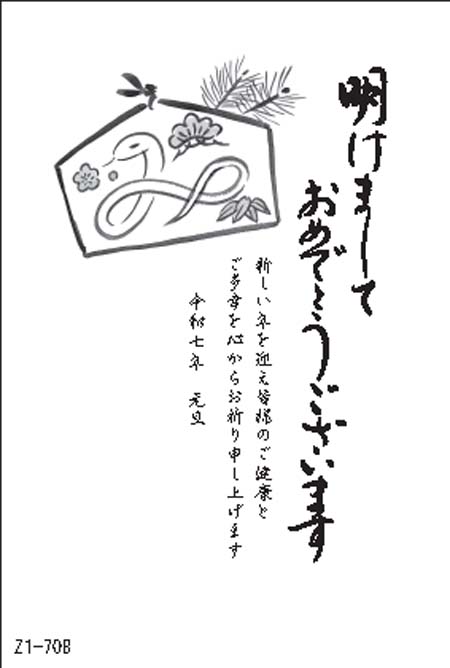 明けまして
おめでとうございます
新しい年を迎え皆様のご健康と
ご多幸を心からお祈り申し上げます
令和七年 元旦
Z1-70B